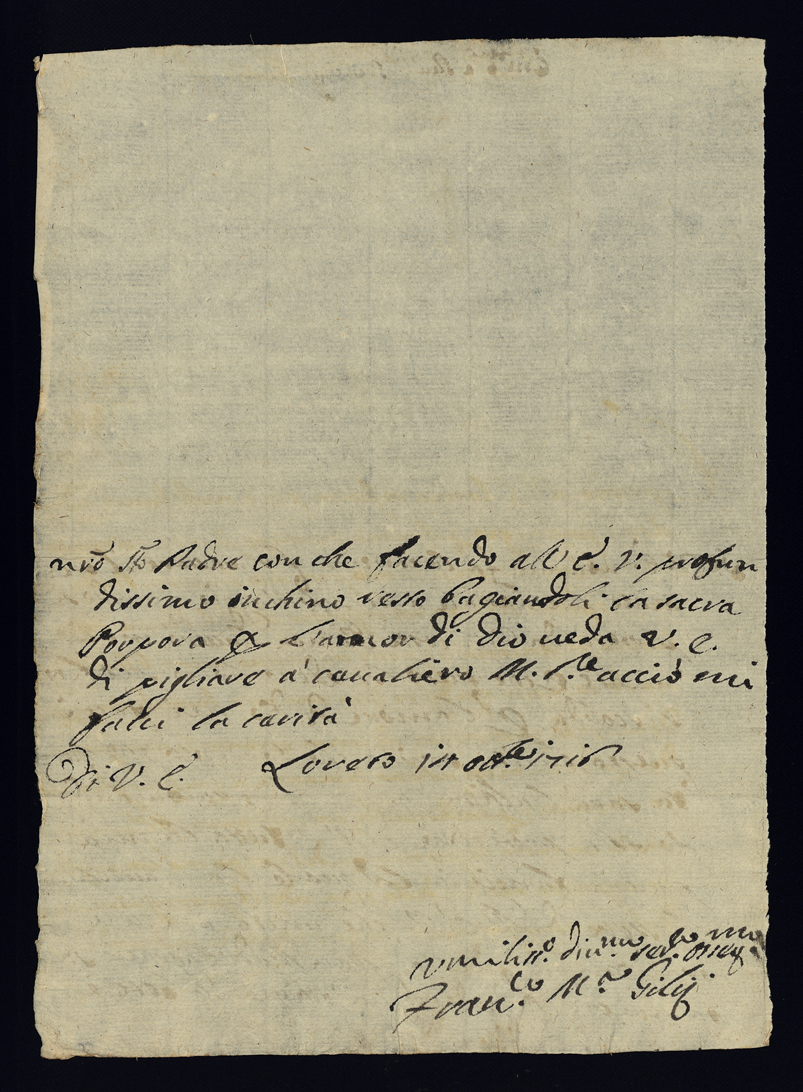 nrõ Sto Padre con che facendo all E. V. profun
dissimo inchino resto bagiandoli la sacra
Porpora & l'amor di dio ueda V. E.
di pigliare à caualiero M. accio mi
facci la carità
Di V. E. Loreto 14 ottre 1716
umiliss.o diu.mo ser.e osseq.mo
Fran.co M.a Gilij